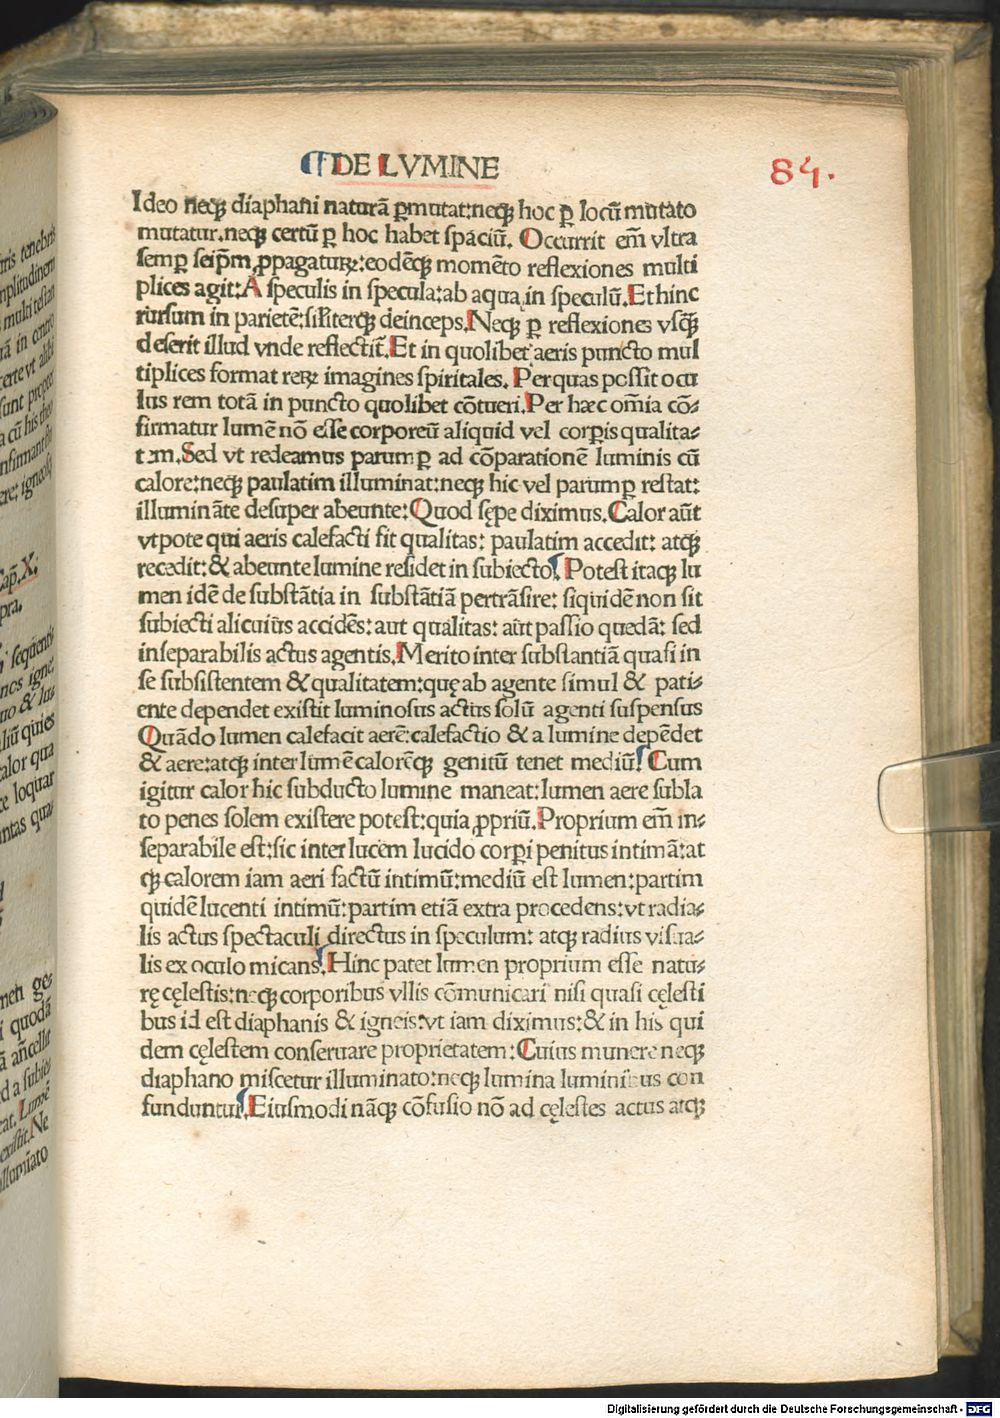 ¶DE LVMINE
84.
Ideo neqꝫ diaphani naturā ꝑmutat:neqꝫ hoc ꝑ locū mutato
mutatur.neqꝫ certū ꝑ hoc habet spaciū. Occurrit em̄ vltra
semꝑ seip̄m ꝓpagaturꝫ:eodēqꝫ momēto reflexiones multi
plices agit:A speculis in specula:ab aqua in speculū.Et hinc
rursum in parietē:sil̄iterqꝫ deinceps.Neqꝫ ꝑ reflexiones vsqꝫ
deserit illud vnde reflectit̄.Et in quolibet aeris puncto mul
tiplices format reꝝ imagines spiritales. Per quas possit ocu
lus rem totā in puncto quolibet cōtueri.Per hæc om̄ia cō⸗
firmatur lumē nō esse corporeū aliquid vel corꝑis qualita⸗
tem.Sed vt redeamus parumꝑ ad cōparationē luminis cū
calore:neqꝫ paulatim illuminat:neqꝫ hic vel parumꝑ restat:
illumināte desuper abeunte:Quod sępe diximus.Calor aūt
vtpote qui aeris calefacti fit qualitas: paulatim accedit: atqꝫ
recedit:& abeunte lumine residet in subiecto. Potest itaqꝫ lu
men idē de substātia in substātiā pertrāsire: siquidē non sit
subiecti alicuius accidēs: aut qualitas: aut passio quedā: sed
inseparabilis actus agentis.Merito inter substantiā quasi in
se subsistentem & qualitatem:quę ab agente simul & pati⸗
ente dependet existit luminosus actus solū agenti suspensus
Quādo lumen calefacit aerē:calefactio & a lumine depēdet
& aere:atqꝫ inter lumē calorēqꝫ genitū tenet mediū. Cum
igitur calor hic subducto lumine maneat:lumen aere subla
to penes solem existere potest:quia ꝓpriū.Proprium em̄ in⸗
separabile est:sic inter lucem lucido corꝑi penitus intimā:at
qꝫ calorem iam aeri factū intimū:mediū est lumen:partim
quidē lucenti intimū:partim etiā extra procedens:vt radia⸗
lis actus spectaculi directus in speculum: atqꝫ radius visua⸗
lis ex oculo micans. Hinc patet lumen proprium esse natu⸗
rę cęlestis:neqꝫ corporibus vllis cōmunicari nisi quasi cęlesti
bus id est diaphanis & igneis:vt iam diximus:& in his qui
dem cęlestem conseruare proprietatem:Cuius munere neqꝫ
diaphano miscetur illuminato:neqꝫ lumina luminibus con
funduntur. Eiusmodi nāqꝫ cōfusio nō ad cęlestes actus atqꝫ
Cap̄.X:
pra.
Digitalisierung gefördert durch die Deutsche Forschungsgemeinschaft - DFG